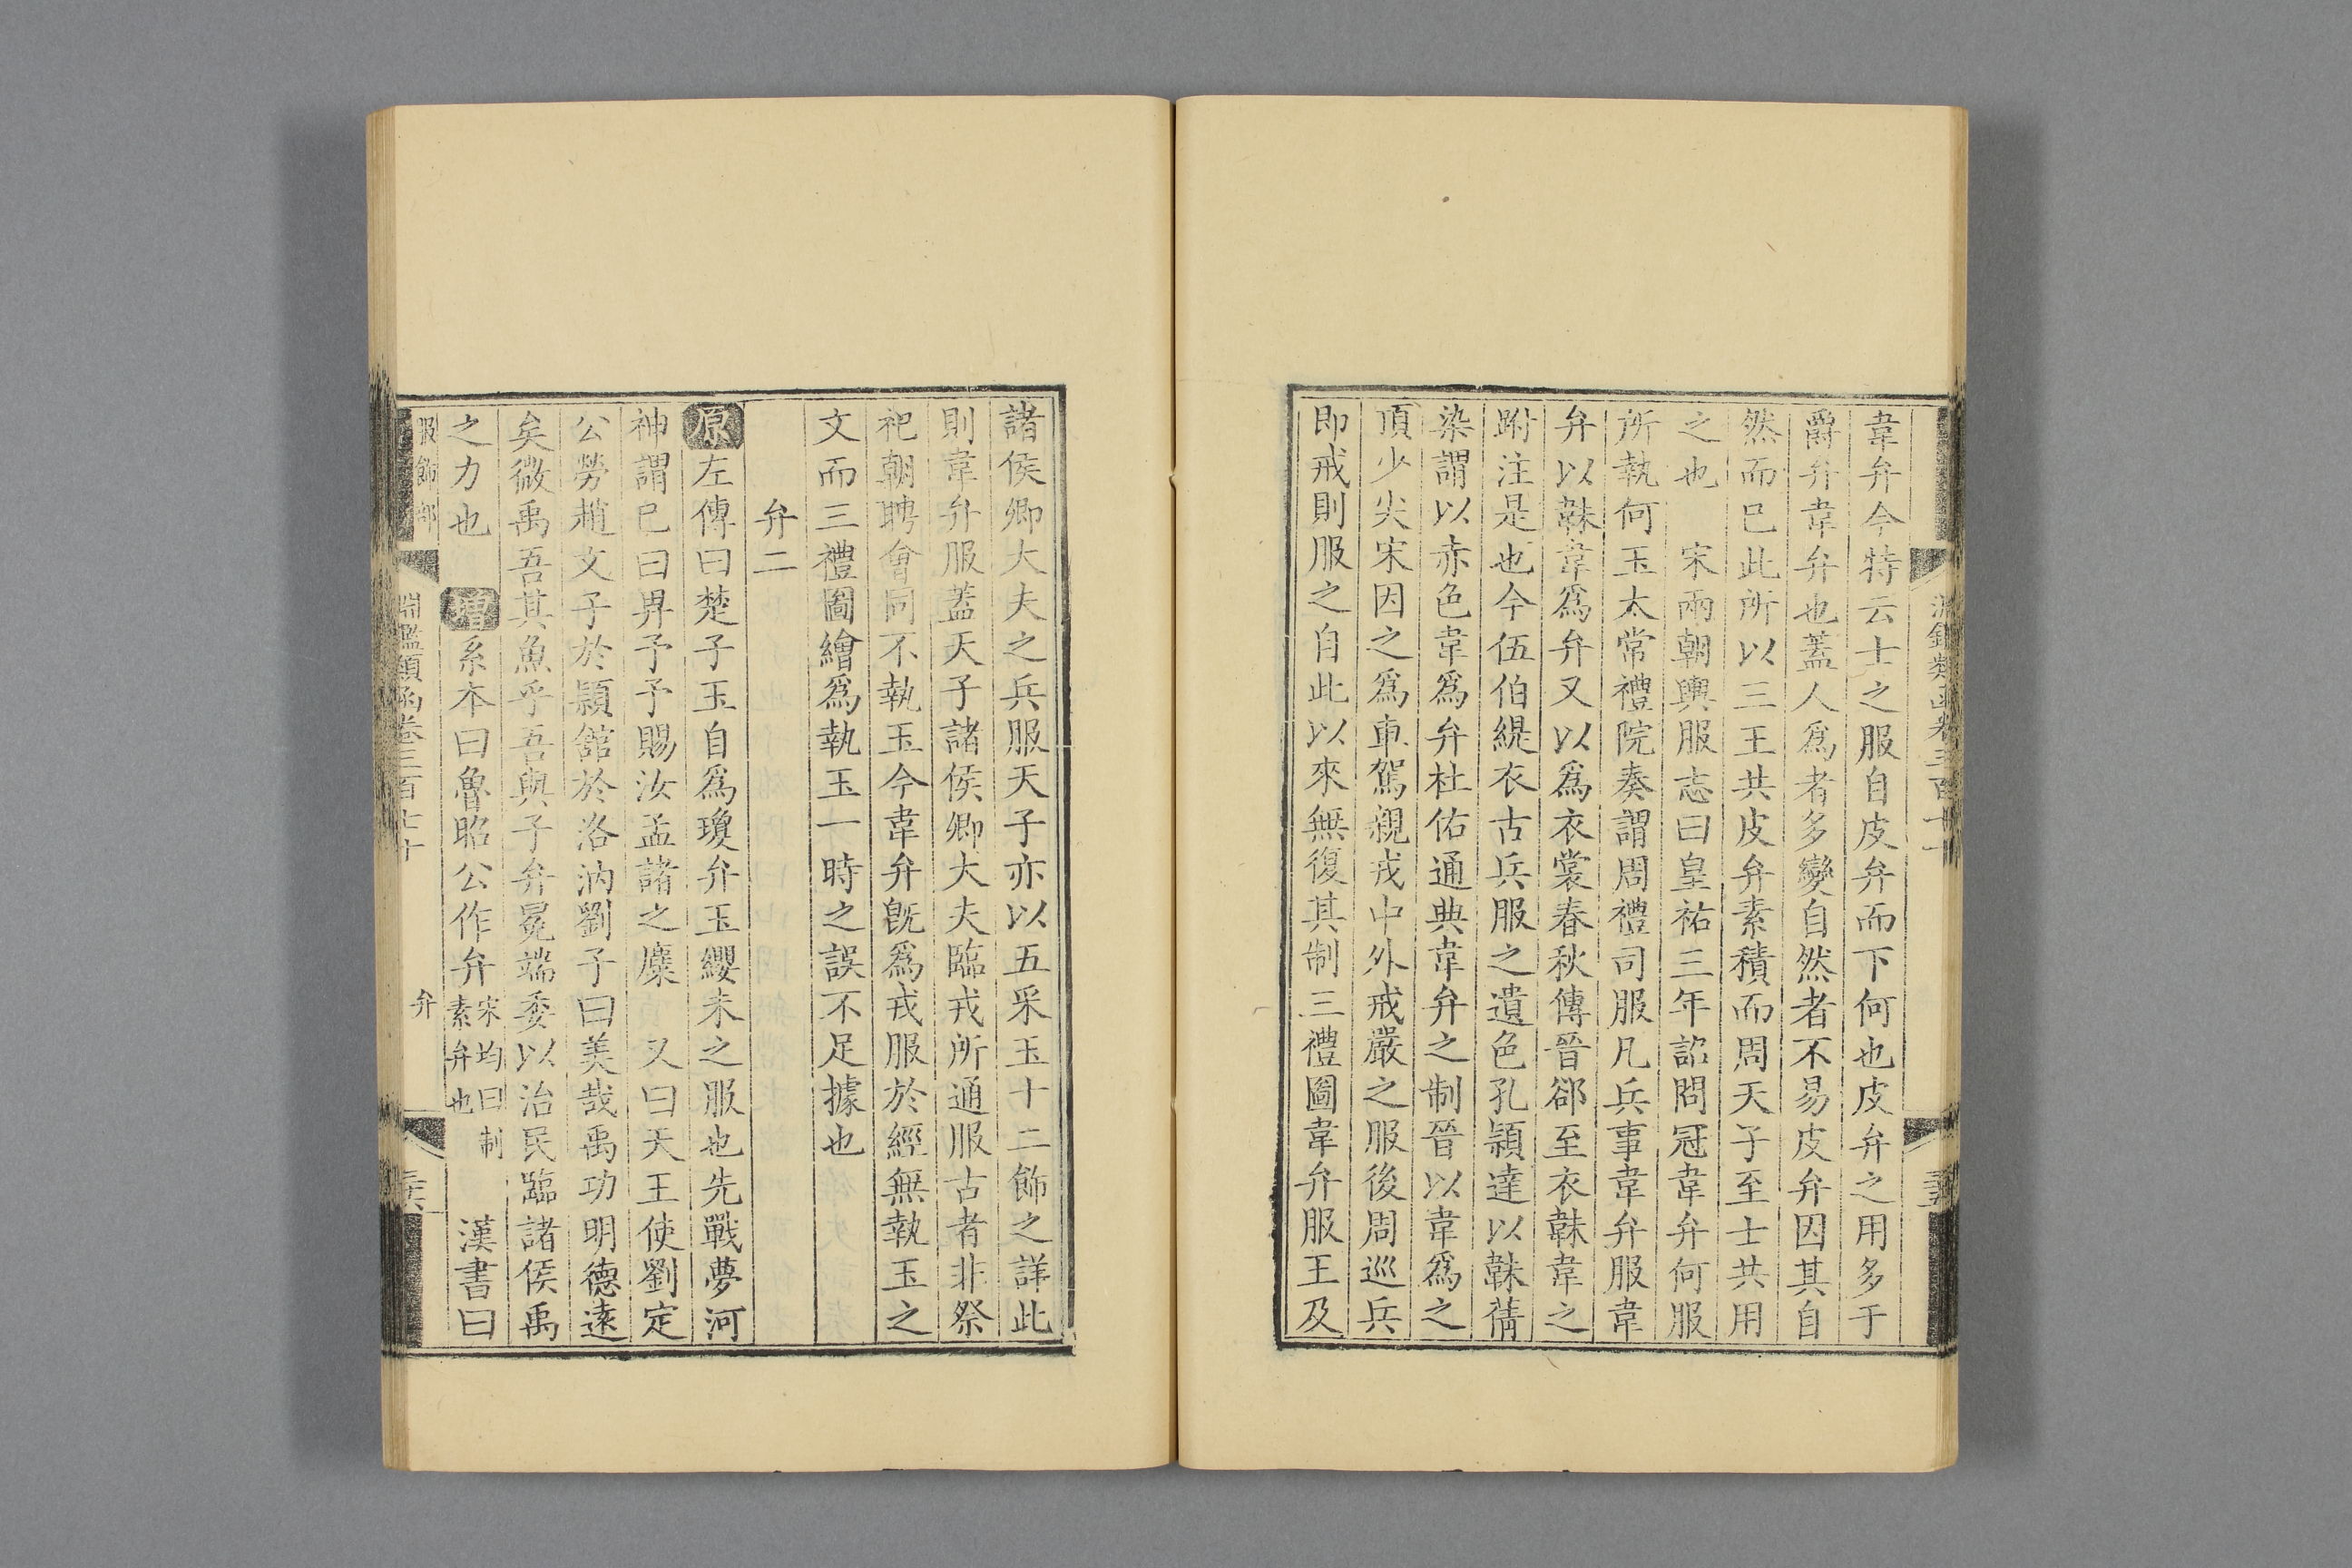 韋弁今特云士之服自皮弁而下何也皮弁之用多于
爵弁韋弁也蓋人爲者多變自然者不易皮弁因其自
然而已此所以三王共皮弁素積而周天子至士共用
之也　宋兩朝輿服志曰皇祐三年詔問冠韋弁何服
所執何玉太常禮院奏謂周禮司服凡兵事韋弁服韋
弁以韎韋爲弁又以爲衣裳春秋傳晉郤至衣韎韋之
跗注是也今伍伯緹衣古兵服之遺色孔頴達以韎蒨
染謂以赤色韋爲弁杜佑通典韋弁之制晉以韋爲之
頂少尖宋因之爲車駕親戎中外戒嚴之服後周巡兵
即戎則服之自此以來無復其制三禮圖韋弁服王及
諸侯卿大夫之兵服天子亦以五采玉十二飾之詳此
則韋弁服蓋天子諸侯卿大夫臨戎所通服古者非祭
祀朝聘會同不執玉今韋弁旣爲戎服於經無執玉之
文而三禮圖繪爲執玉一時之誤不足據也
弁二
原左傳曰楚子玉自爲瓊弁玉纓未之服也先戰夢河
神謂已曰畀予予賜汝孟諸之麋　又曰天王使劉定
公勞趙文子於頴舘於洛汭劉子曰美哉禹功明德遠
矣微禹吾其魚乎吾與子弁冕端委以治民臨諸侯禹
之力也　增系本曰魯昭公作弁宋均曰制素弁也　漢書曰
服飾部　淵鑑類函卷三百七十　弁　二六